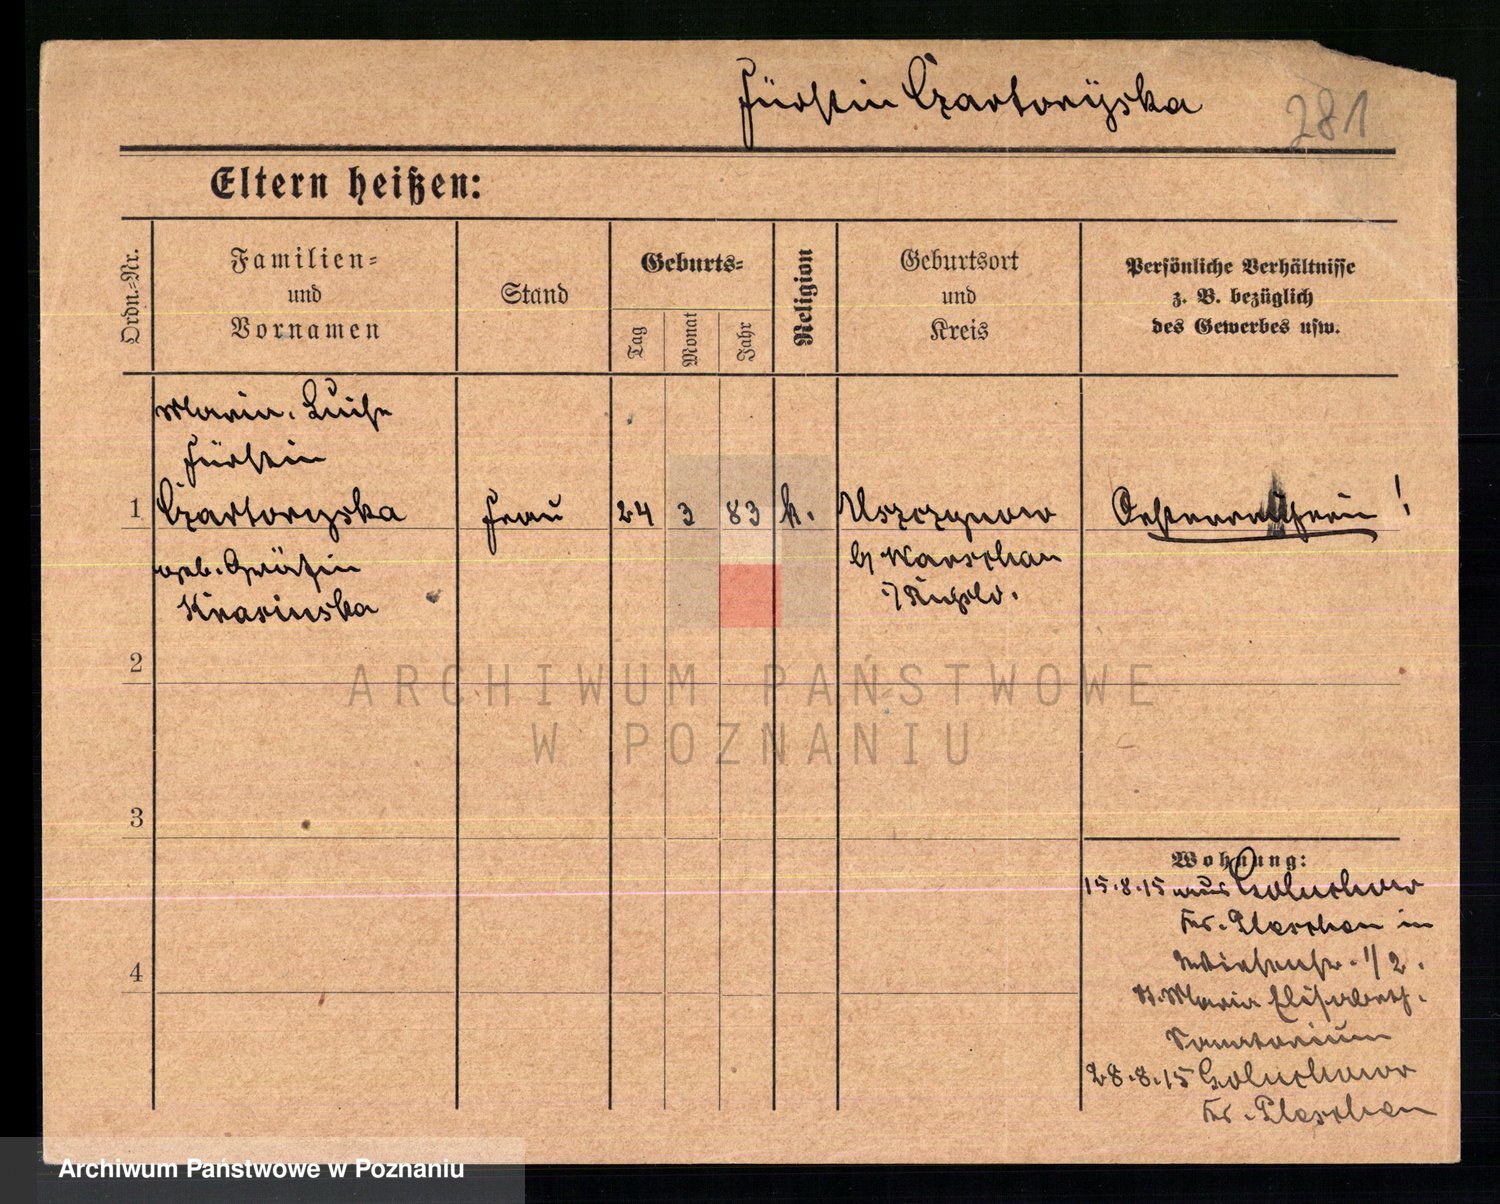 Fürstin Czartorÿska
281
Eltern heißen:
Ordn.-Nr.
Familien-
und
Vornamen
Stand
Geburts-
Tag
Monat
Jahr
Religion
Geburtsort
und
Kreis
Persönliche Verhältnisse
z. B. bezüglich
des Gewerbes usw.
Maria. Luise
Fürstin
1 Czartoryska Frau 24 3 83 k. Oesterreicherin !
geb. Gräfin b/ Warschau
Krasinska i/ Rußld.
2
ARCHIWUM PAŃSTWOWE
W POZNANIU
3
Wohnung:
15.8.15 aus Goluchow
Kr. Pleschen in
1/2.
St. Maria Elisabeth.
4
Sanatorium
28.8.15 Goluchow
Kr. Pleschen
Archiwum Państwowe w Poznaniu